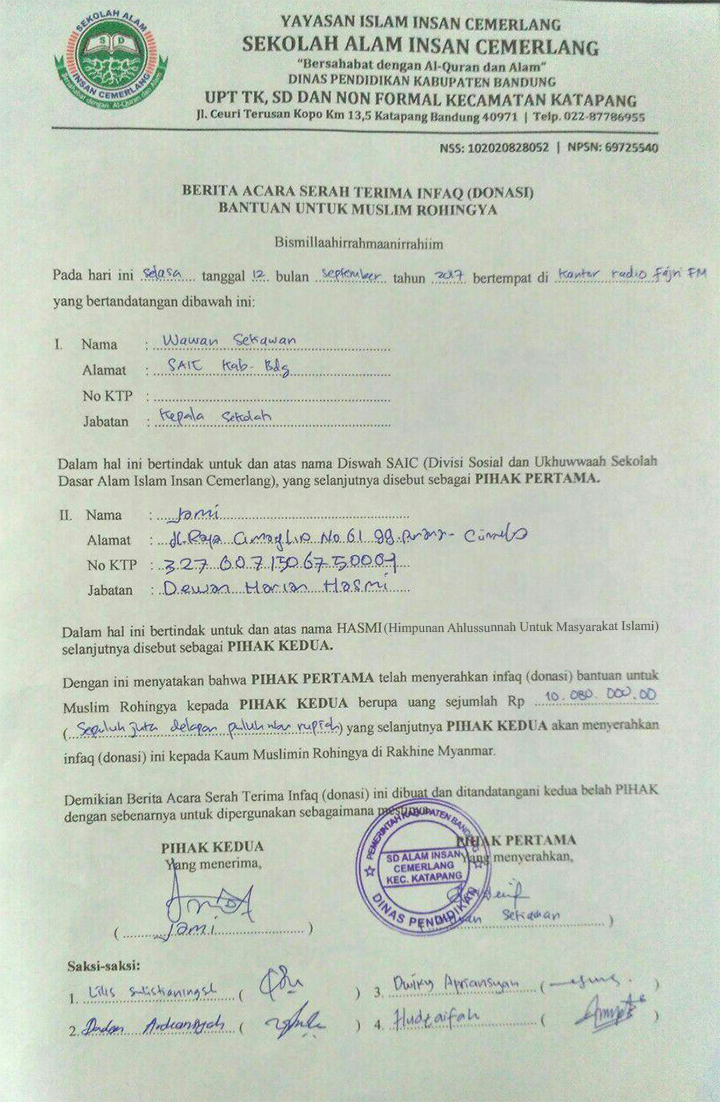 SEKOLAH ALAM
SD
INSAN CEMERLANG
Bersahabat dengan Al-Quran dan Alam
YAYASAN ISLAM INSAN CEMERLANG
SEKOLAH ALAM INSAN CEMERLANG
"Bersahabat dengan Al-Quran dan Alam"
DINAS PENDIDIKAN KABUPATEN BANDUNG
UPT TK, SD DAN NON FORMAL KECAMATAN KATAPANG
Jl. Ceuri Terusan Kopo Km 13,5 Katapang Bandung 40971 | Telp. 022-87786955
NSS: 102020828052 | NPSN: 69725540
BERITA ACARA SERAH TERIMA INFAQ (DONASI)
BANTUAN UNTUK MUSLIM ROHINGYA
Bismillaahirrahmaanirrahiim
Pada hari ini selasa tanggal 12 bulan september tahun 2017 bertempat di kantor radio Fajri FM
yang bertandatangan dibawah ini:
I. Nama : Wawan Setiawan
Alamat : SAIC Kab. Bdg
No KTP :
Jabatan : Kepala Sekolah
Dalam hal ini bertindak untuk dan atas nama Diswah SAIC (Divisi Sosial dan Ukhuwwaah Sekolah
Dasar Alam Islam Insan Cemerlang), yang selanjutnya disebut sebagai PIHAK PERTAMA.
II. Nama : Jami
Alamat : Jl. Raya No. 61 gg.
No KTP :
Jabatan : Dewan Harian Hasmi
Dalam hal ini bertindak untuk dan atas nama HASMI(Himpunan Ahlussunnah Untuk Masyarakat Islami)
selanjutnya disebut sebagai PIHAK KEDUA.
Dengan ini menyatakan bahwa PIHAK PERTAMA telah menyerahkan infaq (donasi) bantuan untuk
Muslim Rohingya kepada PIHAK KEDUA berupa uang sejumlah Rp 10.080.000.00
(Sepuluh juta delapan puluh rupiah) yang selanjutnya PIHAK KEDUA akan menyerahkan
infaq (donasi) ini kepada Kaum Muslimin Rohingya di Rakhine Myanmar.
Demikian Berita Acara Serah Terima Infaq (donasi) ini dibuat dan ditandatangani kedua belah PIHAK
dengan sebenarnya untuk dipergunakan sebagaimana mestinya.
PIHAK KEDUA
Yang menerima,
(Jami)
PIHAK PERTAMA
Yang menyerahkan,
(Wawan Setiawan)
PEMERINTAH KABUPATEN BANDUNG
SD ALAM INSAN
CEMERLANG
KEC. KATAPANG
DINAS PENDIDIKAN
Saksi-saksi:
1. Lilis Sulistianingsih ( )
2. Dadan Ardiansyah ( )
3. Dwiky Apriansyah ( )
4. Hudzaifah ( )